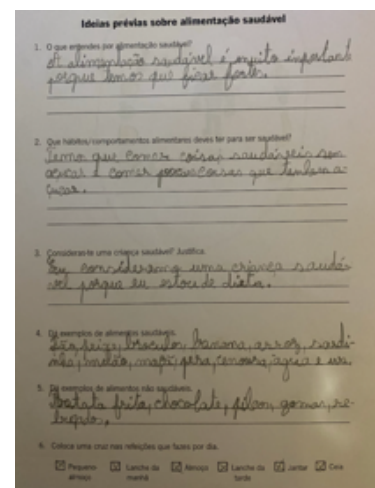 Ideias prévias sobre alimentação saudável
1. O que entendes por alimentação saudável?
A alimentação saudável é muito important
porque temos que ficar fortes.
2. Que hábitos/comportamentos alimentares deves ter para ser saudável?
Temos que comer coisas saudáveis sem
açucar e comer poucas coisas que tenham a-
çucar.
3. Consideras-te uma criança saudável? Justifica.
Eu considero-me uma criança saudá-
vel porque eu estou de dieta.
4. Dá exemplos de alimentos saudáveis.
São peixe, brócolos, banana, arroz, sardi-
nha, melão, maçã, pera, cenoura, água e
5. Dá exemplos de alimentos não saudáveis.
Batata frita, chocolate, gomas, re-
6. Coloca uma cruz nas refeições que fazes por dia.
Pequeno-almoço Lanche da manhã Almoço Lanche da tarde Jantar Ceia